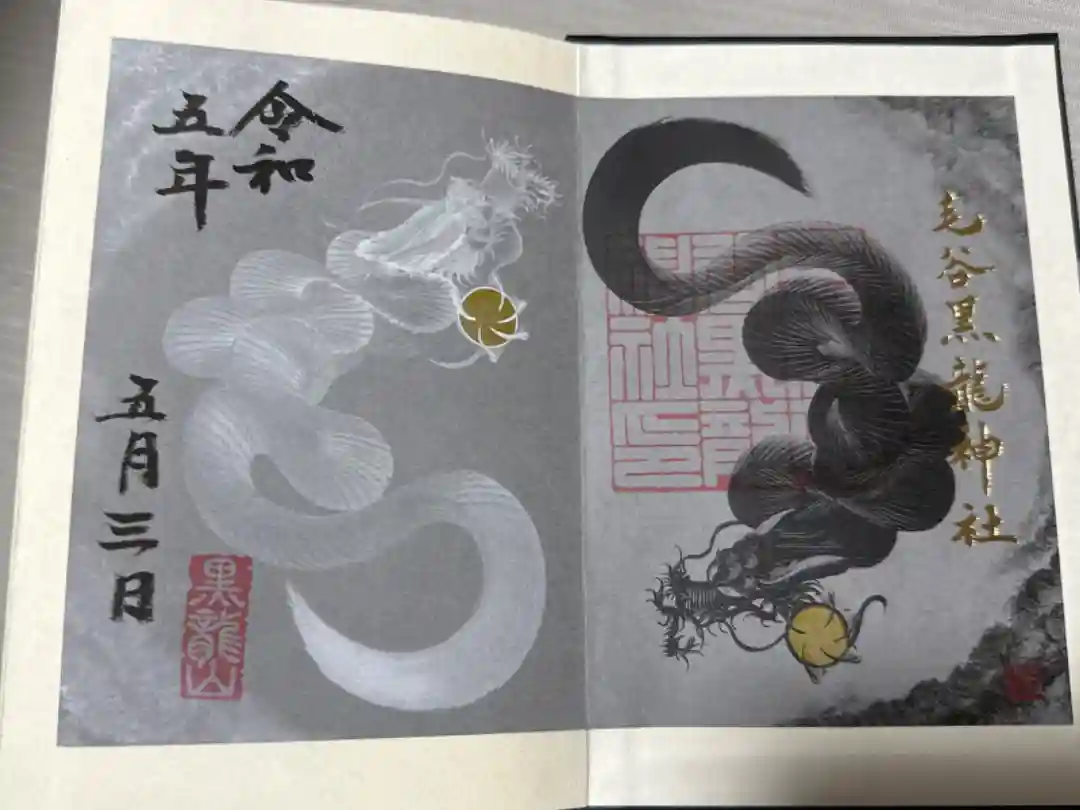 毛谷黒龍神社
令和
五年
五月三日
黒龍山